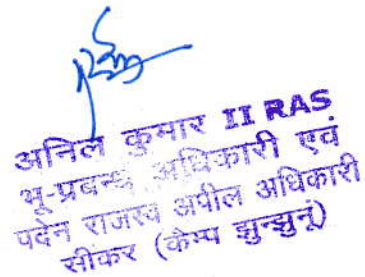 अनिल कुमार II RAS
भू-प्रबन्ध अधिकारी एवं
पदेन राजस्व अपील अधिकारी
सीकर (केम्प झुन्झुनूं)